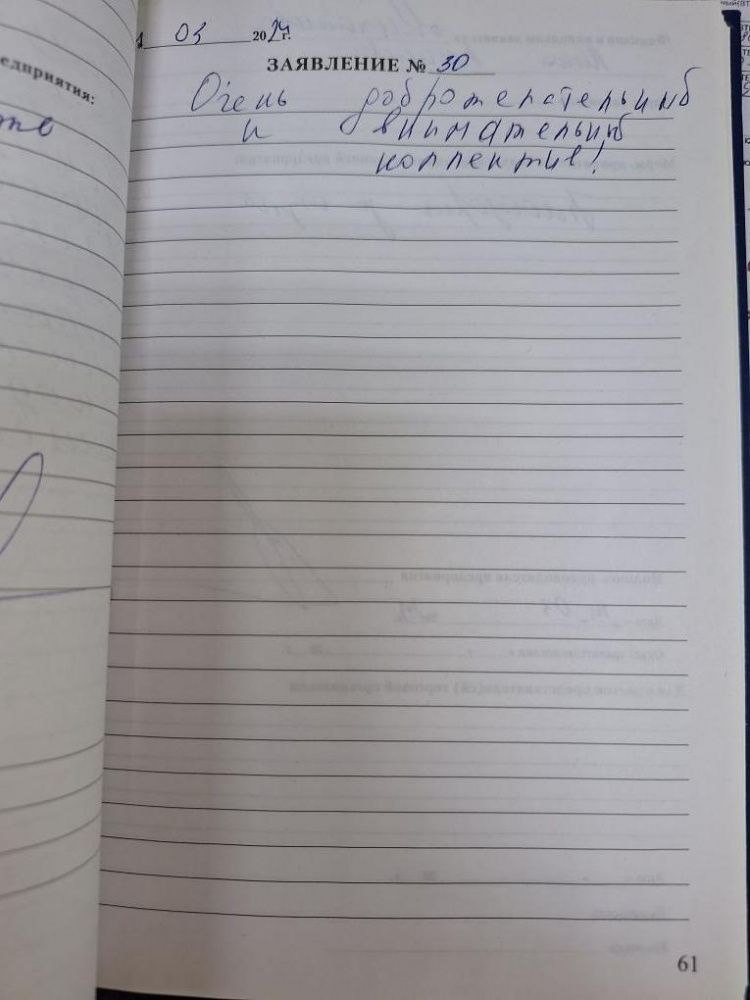 03 2024 г.
ЗАЯВЛЕНИЕ № 30
едприятия:
Очень доброжелательный
и внимательный
коллектив!
61